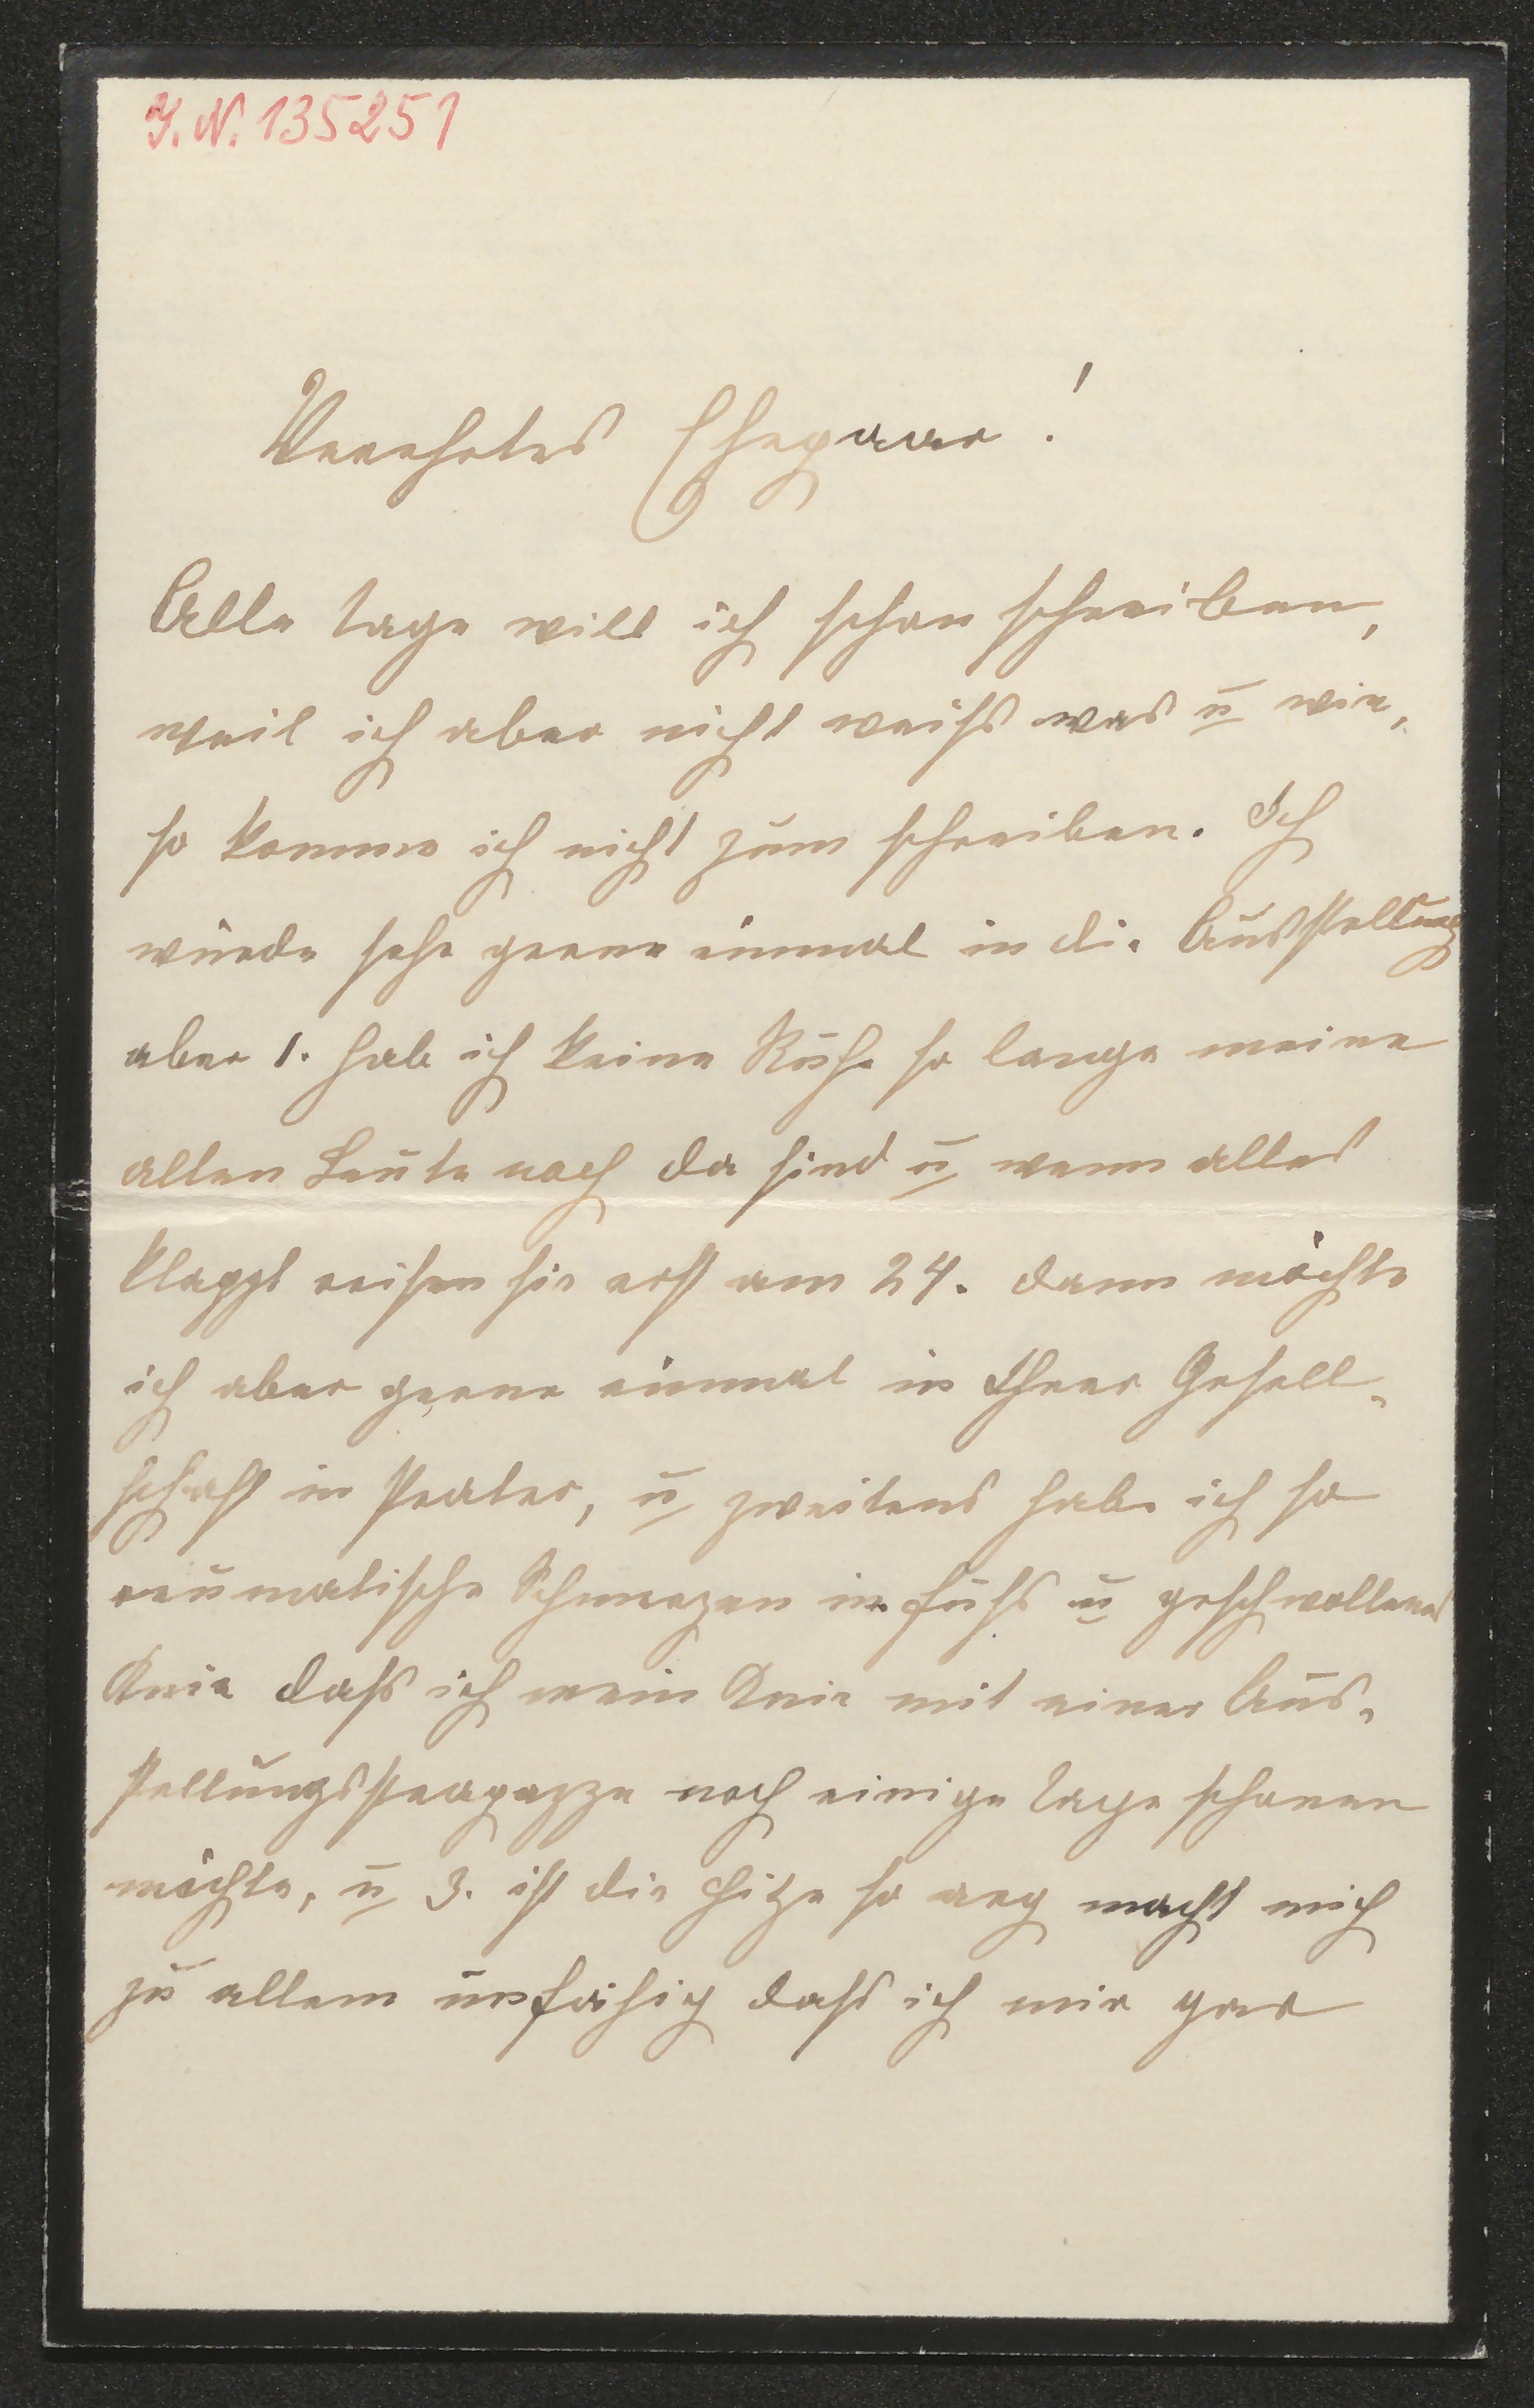 I. N. 135251
Verehrtes Ehepaar!
Alle tage will ich schon schreiben,
weil ich aber nicht weiß was u wie,
so komme ich nicht zum schreiben. Ich
würde sehr gerne einmal in die Ausstellung
aber 1. hab ich keine Ruhe so lange meine
alten Leute noch da sind u wenn alles
klappt reisen sie erst am 24. dann möchte
ich aber gerne einmal in Ihrer Gesell-
schaft in Prater, u zweitens habe ich so
reumatische Schmerzen im fuß u geschwollenes
Knie daß ich mein Knie mit einer Aus-
stellungsstrapazze noch einige tage schonen
möchte, u 3. ist die Hitze so arg macht mich
zu allem unfähig daß ich mir gar